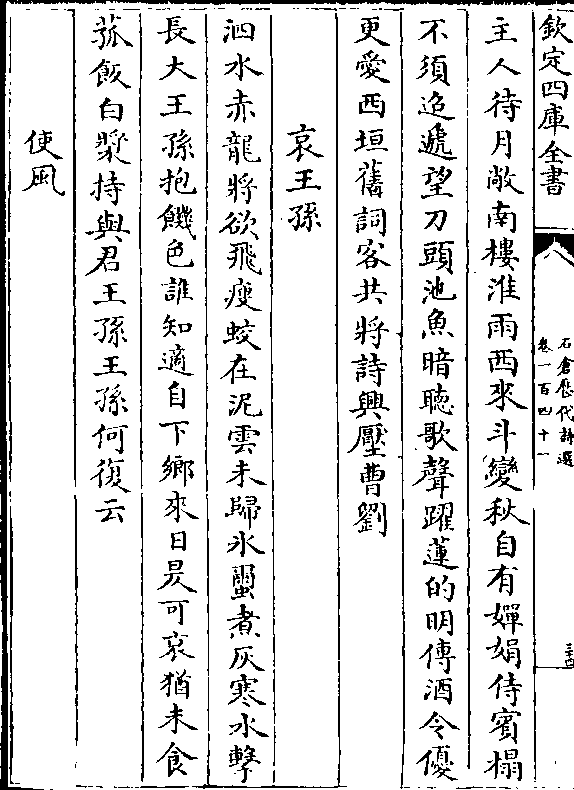 欽定四庫全書
石倉歷代詩選
卷一百四十一
三十四
主人待月敞南樓淮雨西來斗變秋自有嬋娟侍賓榻
不須迢遞望刀頭池魚暗聽歌聲躍蓮的明傳酒令優
更愛西垣舊詞客共將詩興壓曹劉
哀王孫
泗水赤龍將欲飛瘦蛟在泥雲未歸氷蠒煮灰寒水擊
長大王孫抱饑色誰知適自下鄉來日昃可哀猶未食
菰飯白漿持與君王孫王孫何復云
使風